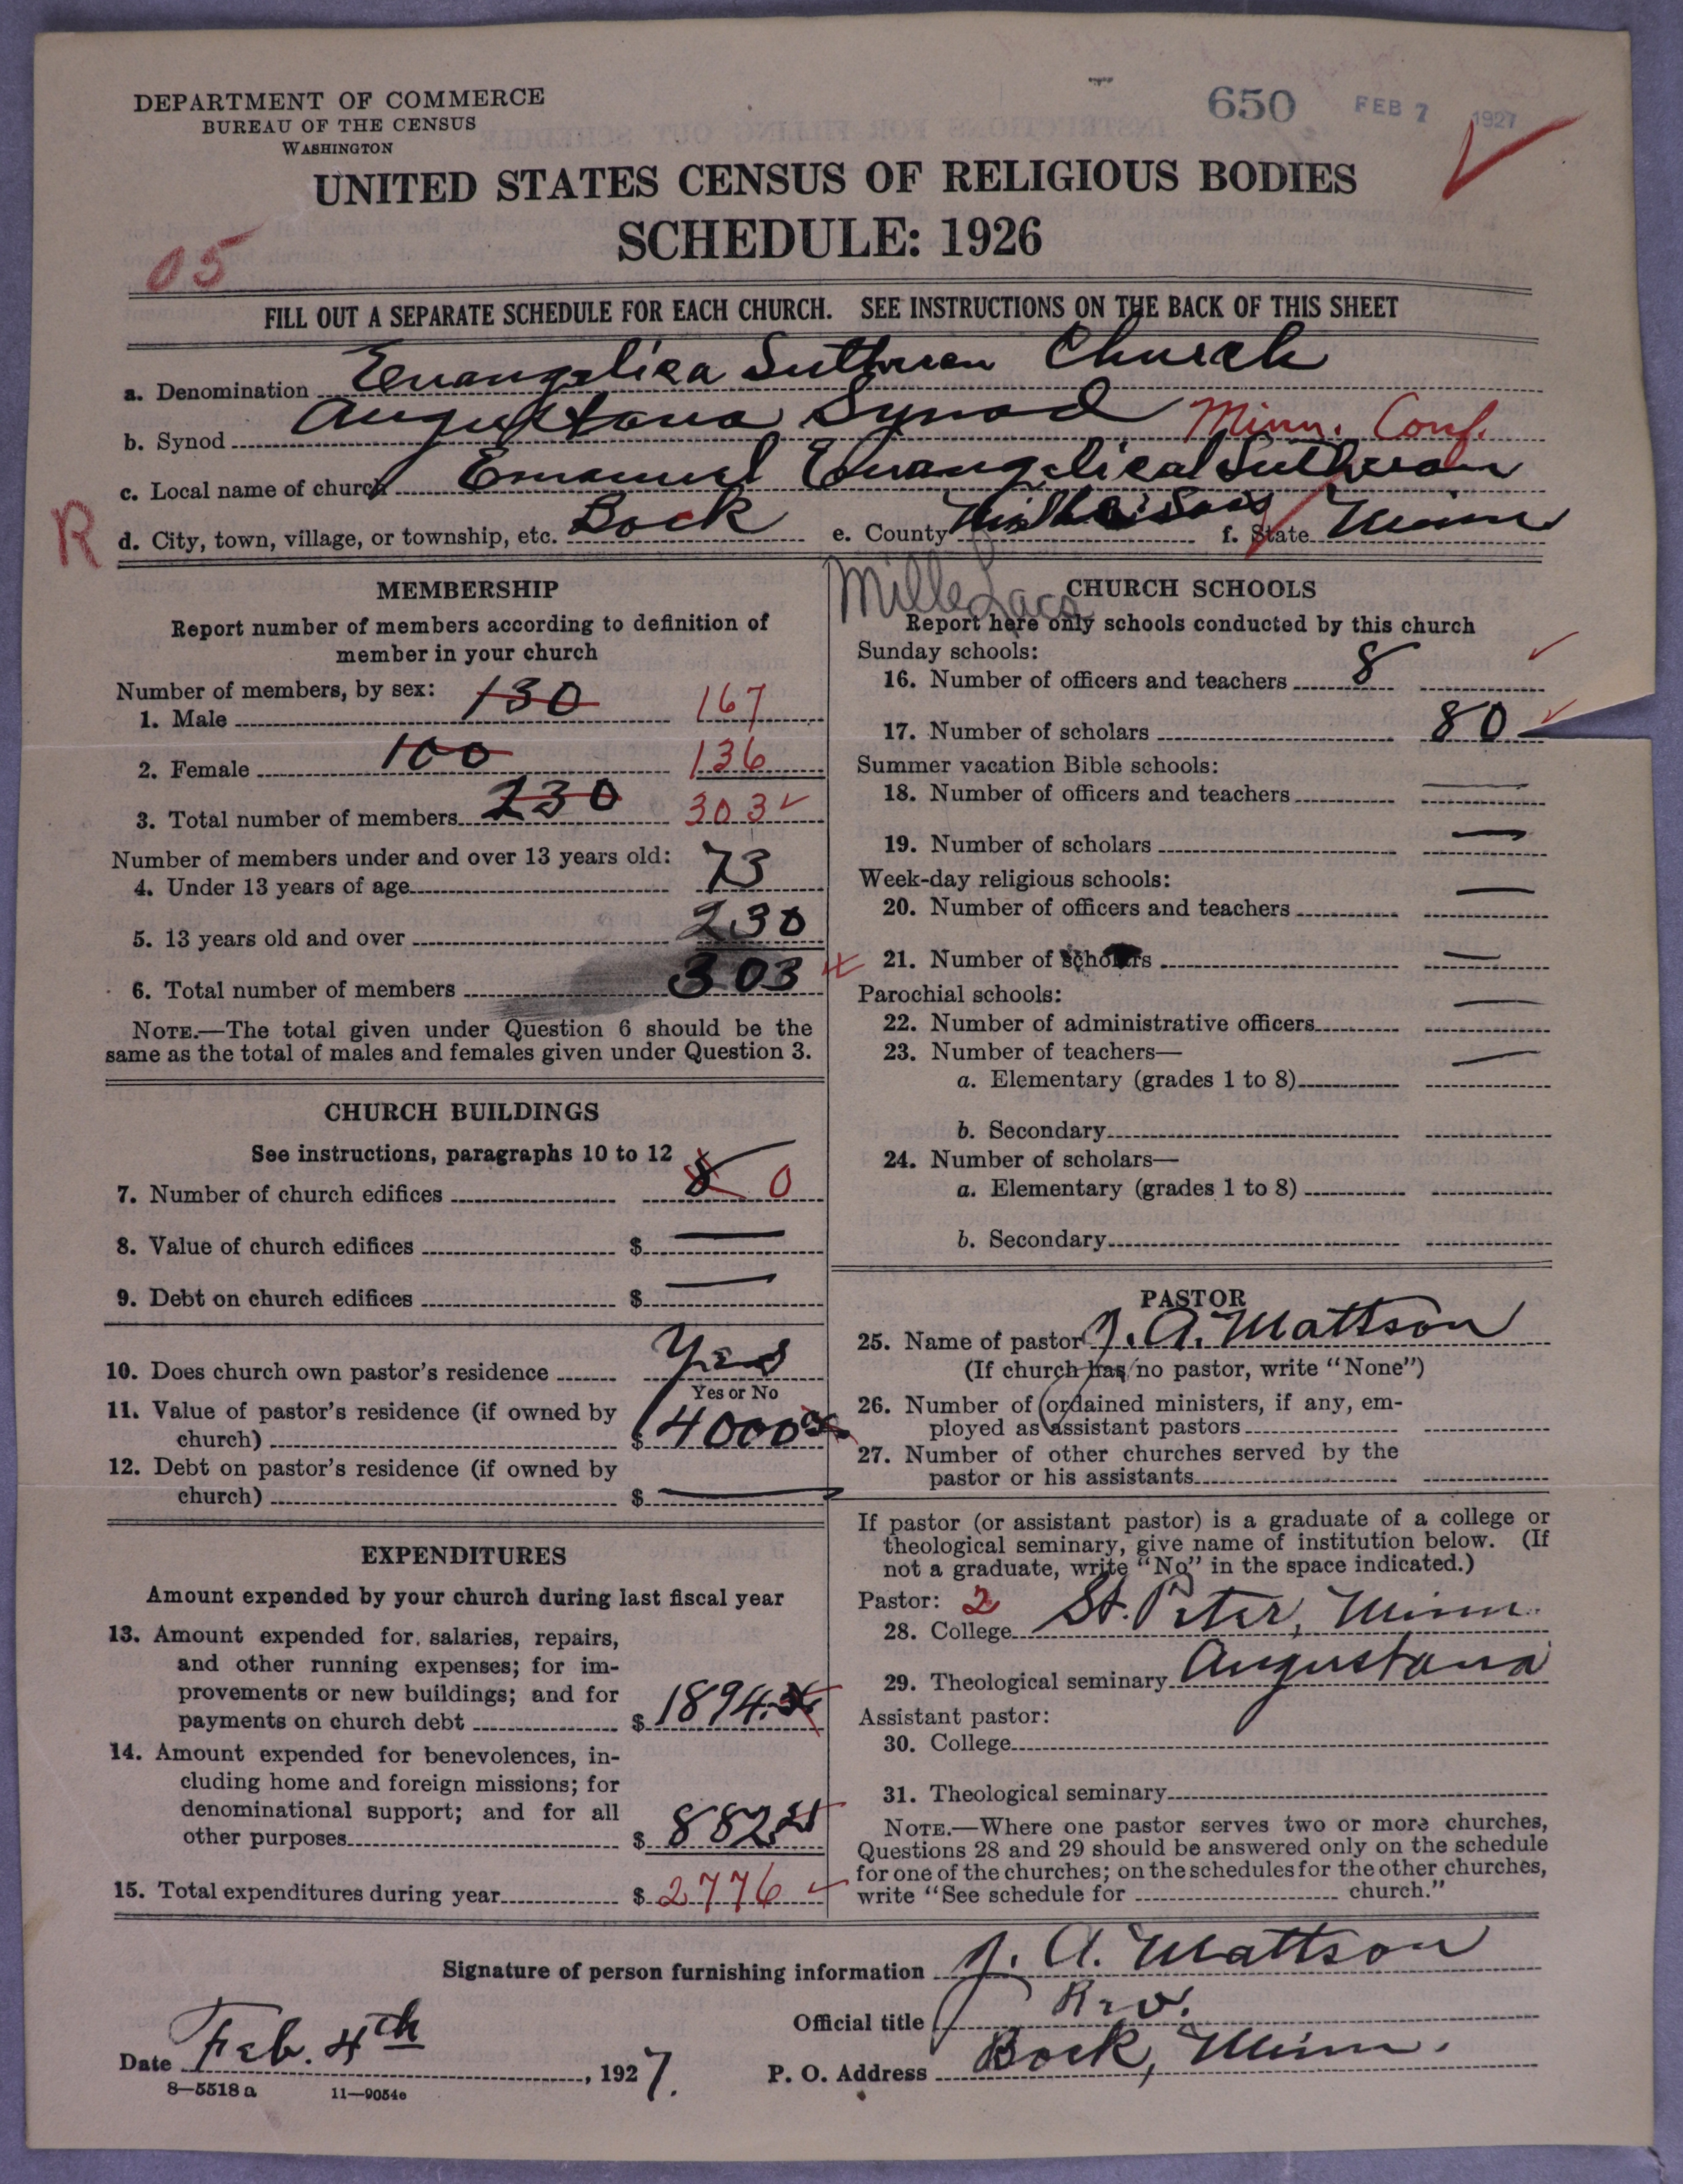 DEPARTMENT OF COMMERCE
BUREAU OF THE CENSUS
WASHINGTON
650 FEB 7 1927
UNITED STATES CENSUS OF RELIGIOUS BODIES
SCHEDULE: 1926
05
FILL OUT A SEPARATE SCHEDULE FOR EACH CHURCH. SEE INSTRUCTIONS ON THE BACK OF THIS SHEET
a. Denomination Evangelica Lutheran Church
b. Synod Augustana Synod Minn. Conf.
c. Local name of church Emanuel Evangelical Lutheran
R
d. City, town, village, or township, etc. Bock e. County f. State Minn
Mille Lacs
MEMBERSHIP
Report number of members according to definition of
member in your church
Number of members, by sex:
1. Male 130 167
2. Female 100 136
3. Total number of members 230 303
Number of members under and over 13 years old:
4. Under 13 years of age 73
5. 13 years old and over 230
6. Total number of members 303
NOTE.—The total given under Question 6 should be the
same as the total of males and females given under Question 3.
CHURCH BUILDINGS
See instructions, paragraphs 10 to 12
7. Number of church edifices 0
8. Value of church edifices $
9. Debt on church edifices $
10. Does church own pastor's residence Yes
Yes or No
11. Value of pastor's residence (if owned by
church) $ 4000
12. Debt on pastor's residence (if owned by
church) $
EXPENDITURES
Amount expended by your church during last fiscal year
13. Amount expended for salaries, repairs,
and other running expenses; for im-
provements or new buildings; and for
payments on church debt $ 1894.
14. Amount expended for benevolences, in-
cluding home and foreign missions; for
denominational support; and for all
other purposes $ 882
15. Total expenditures during year $ 2776
CHURCH SCHOOLS
Report here only schools conducted by this church
Sunday schools:
16. Number of officers and teachers 8
17. Number of scholars 80
Summer vacation Bible schools:
18. Number of officers and teachers
19. Number of scholars
Week-day religious schools:
20. Number of officers and teachers
21. Number of scholars
Parochial schools:
22. Number of administrative officers
23. Number of teachers—
a. Elementary (grades 1 to 8)
b. Secondary
24. Number of scholars—
a. Elementary (grades 1 to 8)
b. Secondary
PASTOR
25. Name of pastor J. A. Mattson
(If church has no pastor, write "None")
26. Number of ordained ministers, if any, em-
ployed as assistant pastors
27. Number of other churches served by the
pastor or his assistants
If pastor (or assistant pastor) is a graduate of a college or
theological seminary, give name of institution below. (If
not a graduate, write "No" in the space indicated.)
Pastor: 2
28. College St. Peter, Minn.
29. Theological seminary Augustana
Assistant pastor:
30. College
31. Theological seminary
NOTE.—Where one pastor serves two or more churches,
Questions 28 and 29 should be answered only on the schedule
for one of the churches; on the schedules for the other churches,
write "See schedule for church."
Signature of person furnishing information J. A. Mattson
Official title Rev.
Date Feb. 4th, 1927. P. O. Address Bock, Minn.
8—5518a 11—9054e